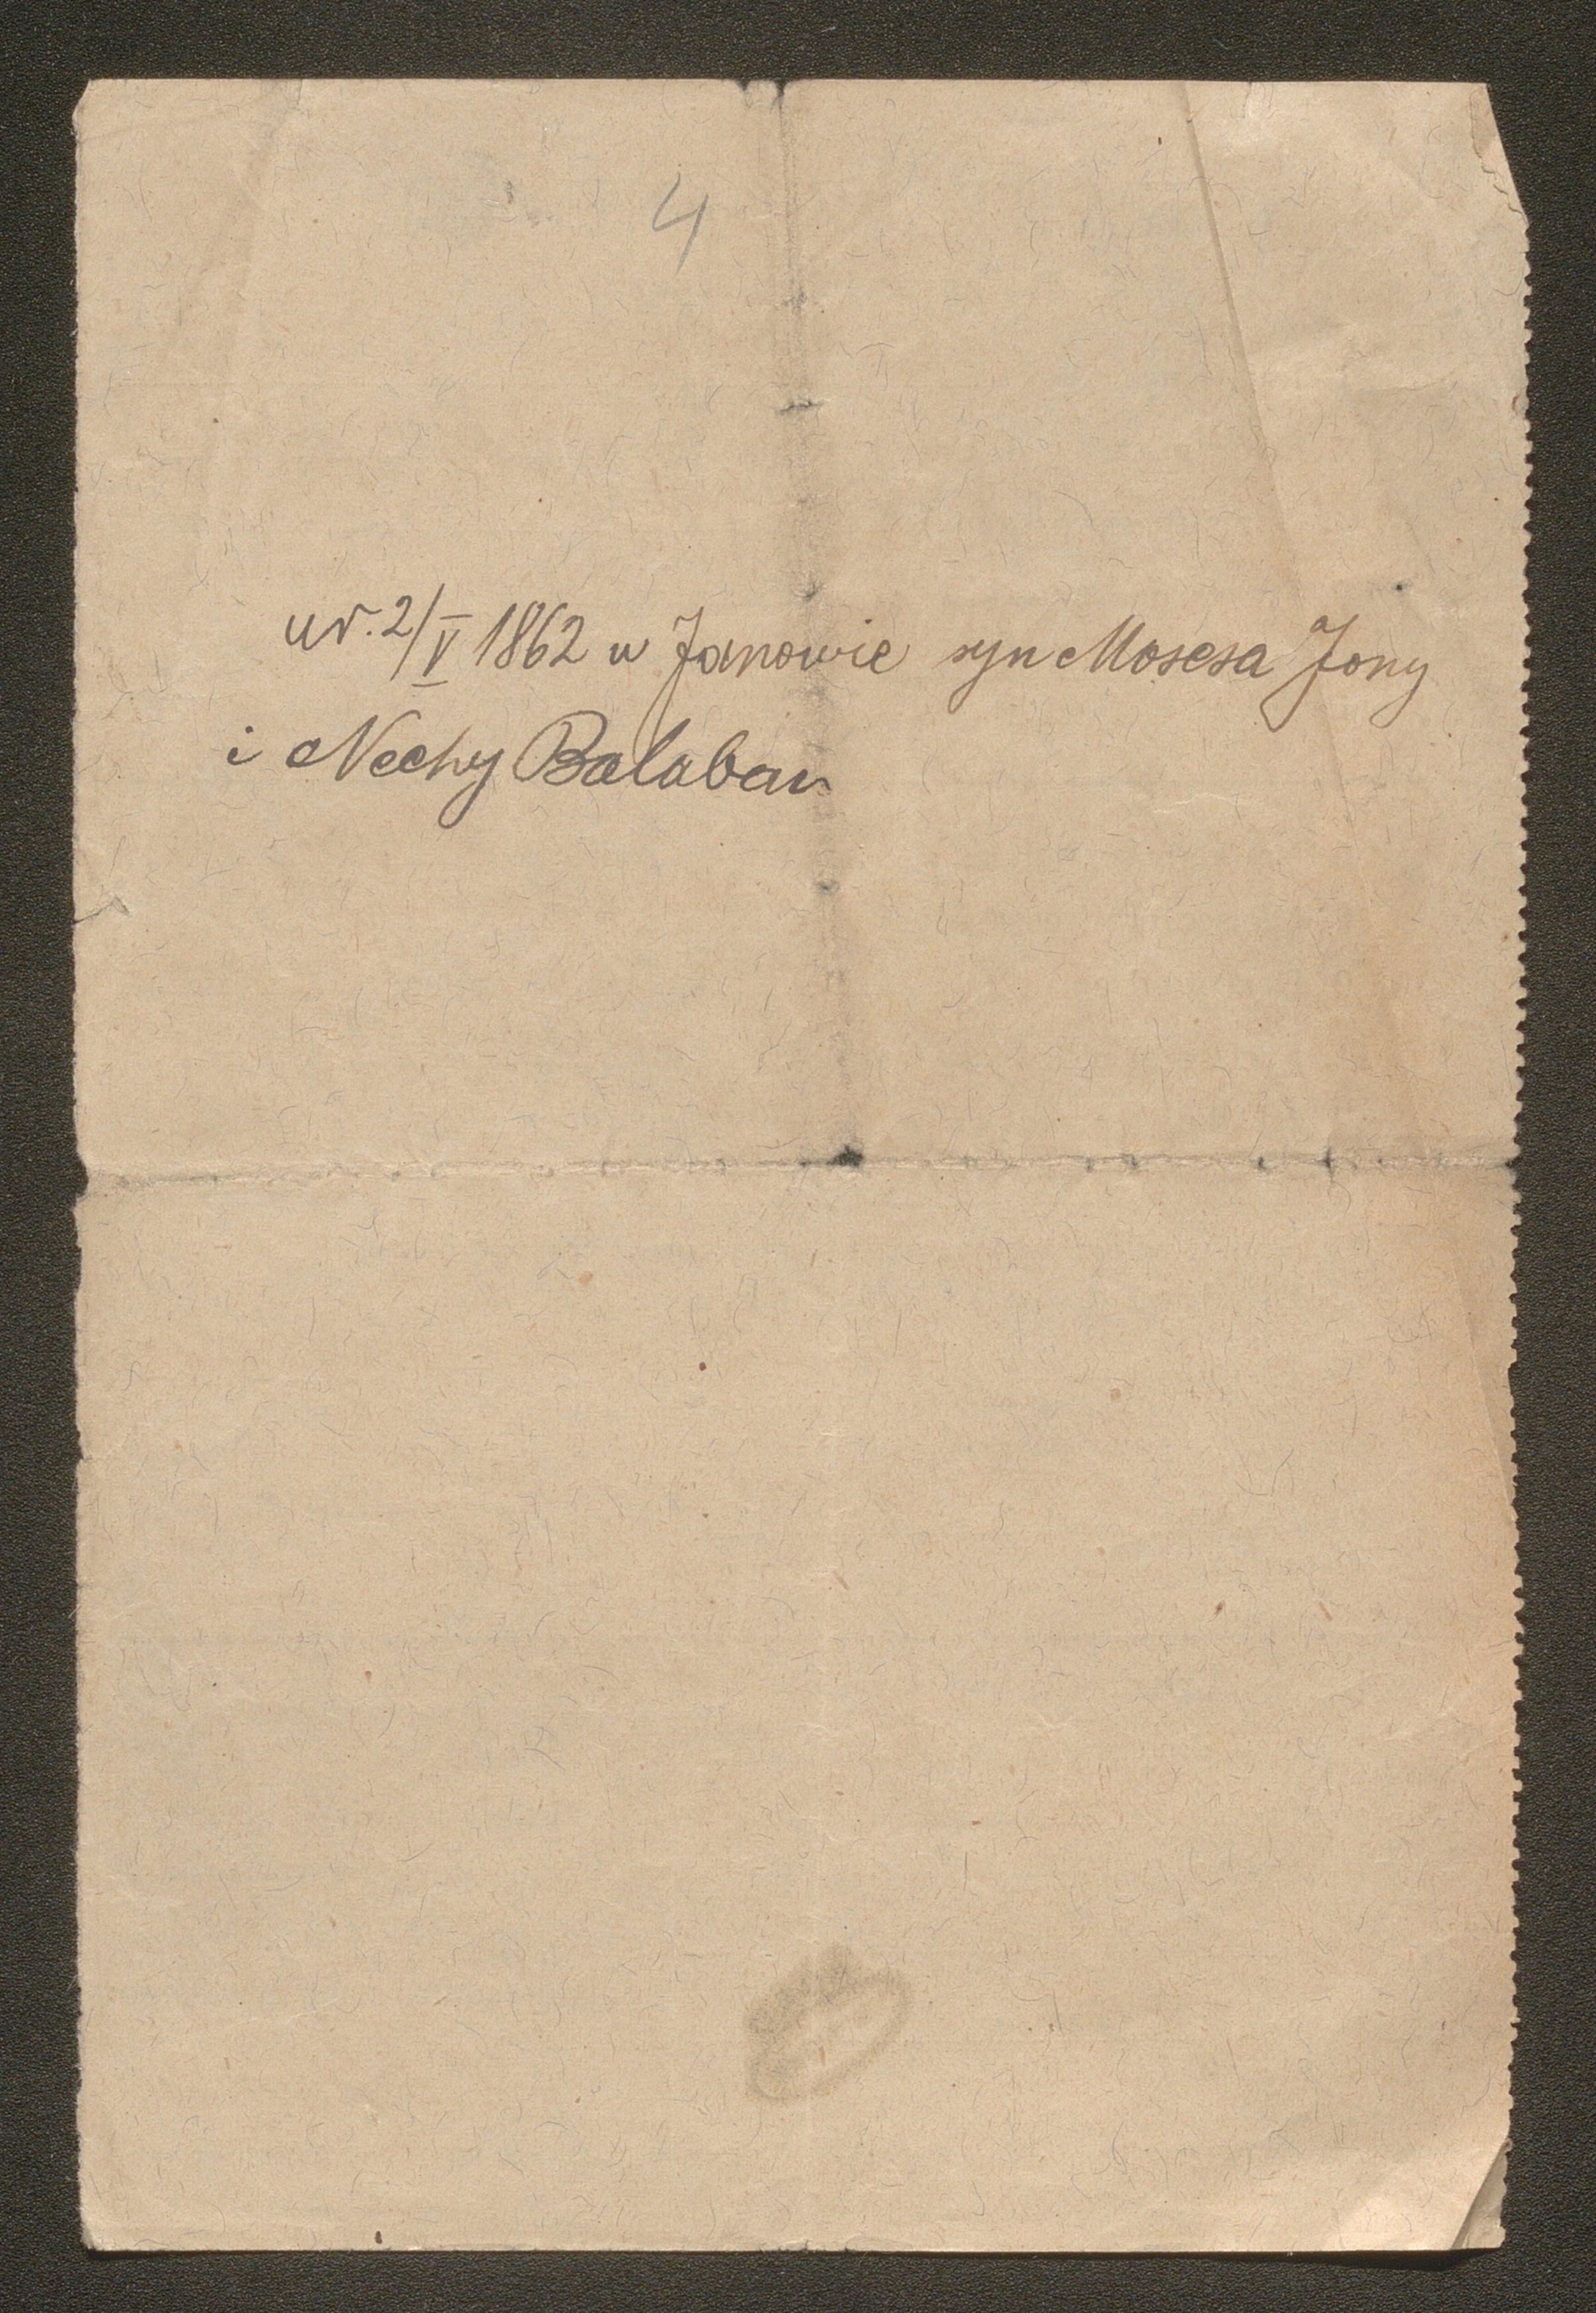 4
ur. 2/V 1862 w Janowie syn Mosesa Jony
i Nechy Balaban